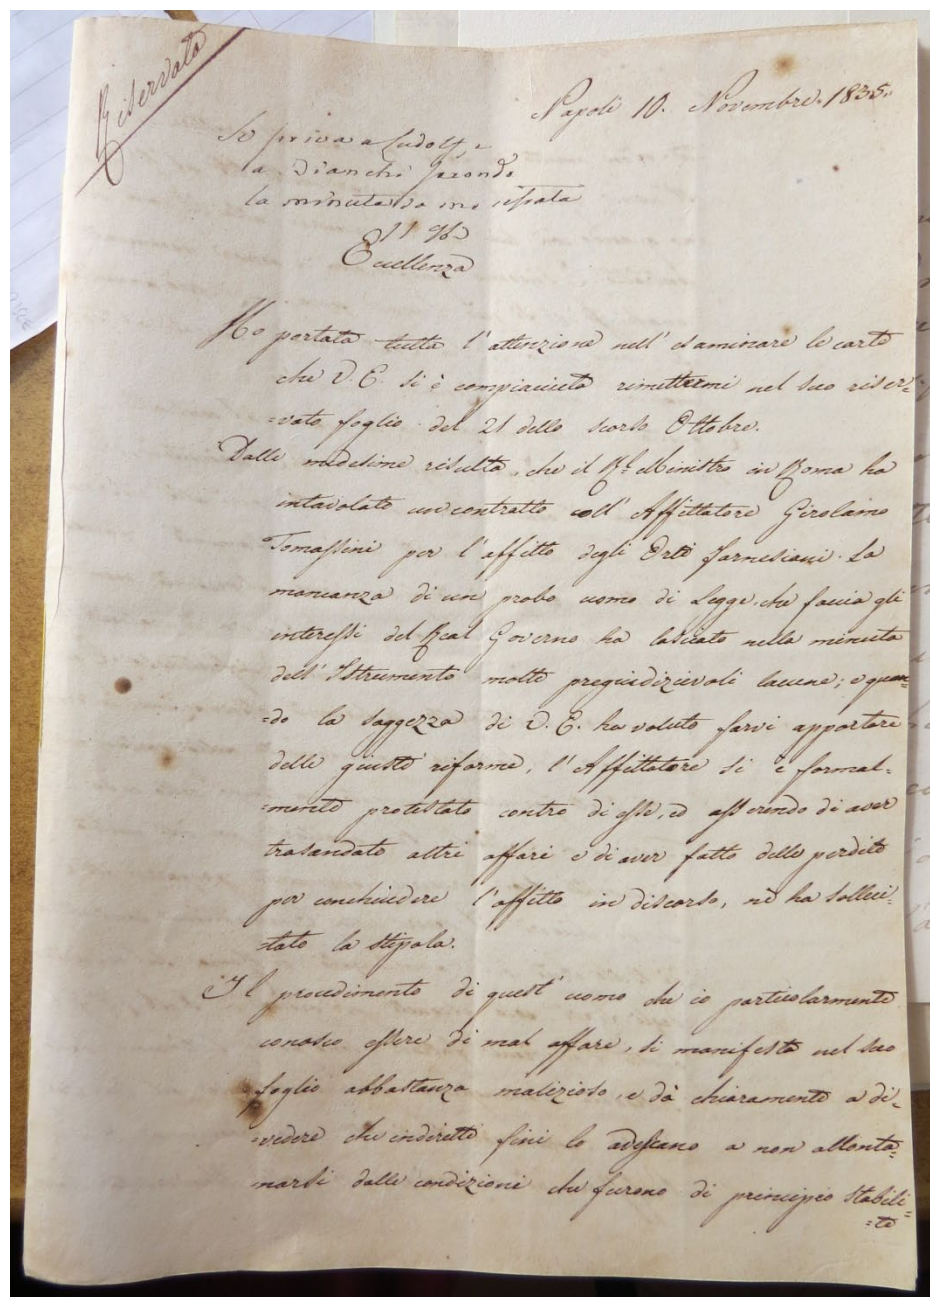 Riservata
Napoli 10. Novembre. 1835.
Si scriva a Ludolf, e
a Bianchi secondo
la minuta da me
Eccellenza
Ho portata tutta l'attenzione nell'esaminare le carte
che V. E. si è compiaciuta rimettermi nel suo riser-
=vato foglio del 21 dello scorso Ottobre.
Dalle medesime risulta, che il Rl. Ministro in Roma ha
intavolato un contratto coll'Affittatore Girolamo
Tomassini per l'affitto degli Orti farnesiani. La
mancanza di un probo uomo di Legge, che faccia gli
interessi del Real Governo ha lasciato nella minuta
dell'Istrumento molte pregiudizievoli lacune; e quan=
=do la saggezza di V. E. ha voluto farvi apportare
delle giuste riforme, l'Affittatore si è formal=
=mente protestato contro di esse, ed asserendo di aver
trasandato altri affari e di aver fatto delle perdite
per conchiudere l'affitto in discorso, ne ha solleci=
=tato la stipola.
Il procedimento di quest'uomo che io particolarmente
conosco essere di mal affare, si manifesta nel suo
foglio abbastanza malizioso, e dà chiaramente a di=
=vedere che indiretti fini lo adescano a non allonta=
=narsi dalle condizioni che furono di principio stabili=
=te